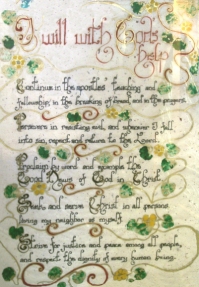 I will with God's
help
Continue in the apostles' teaching and
fellowship, in the breaking of bread, and in the prayers.
Persevere in resisting evil, and whenever I fall
into sin, repent and return to the Lord.
Proclaim by word and example the
Good News of God in Christ.
Seek and serve Christ in all persons
loving my neighbor as myself.
Strive for justice and peace among all people,
and respect the dignity of every human being.